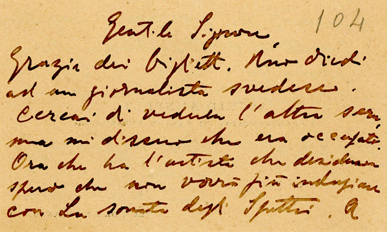 104
Gentile Signore
Grazie dei biglietti. Uno diedi
ad un giornalista svedese.
Cercai di vederla l'altra sera,
ma mi dissero che era occupato.
Ora che ha l'artista che desiderava
spero che non vorrà più indugiare
con La sonata degli Spettri. A